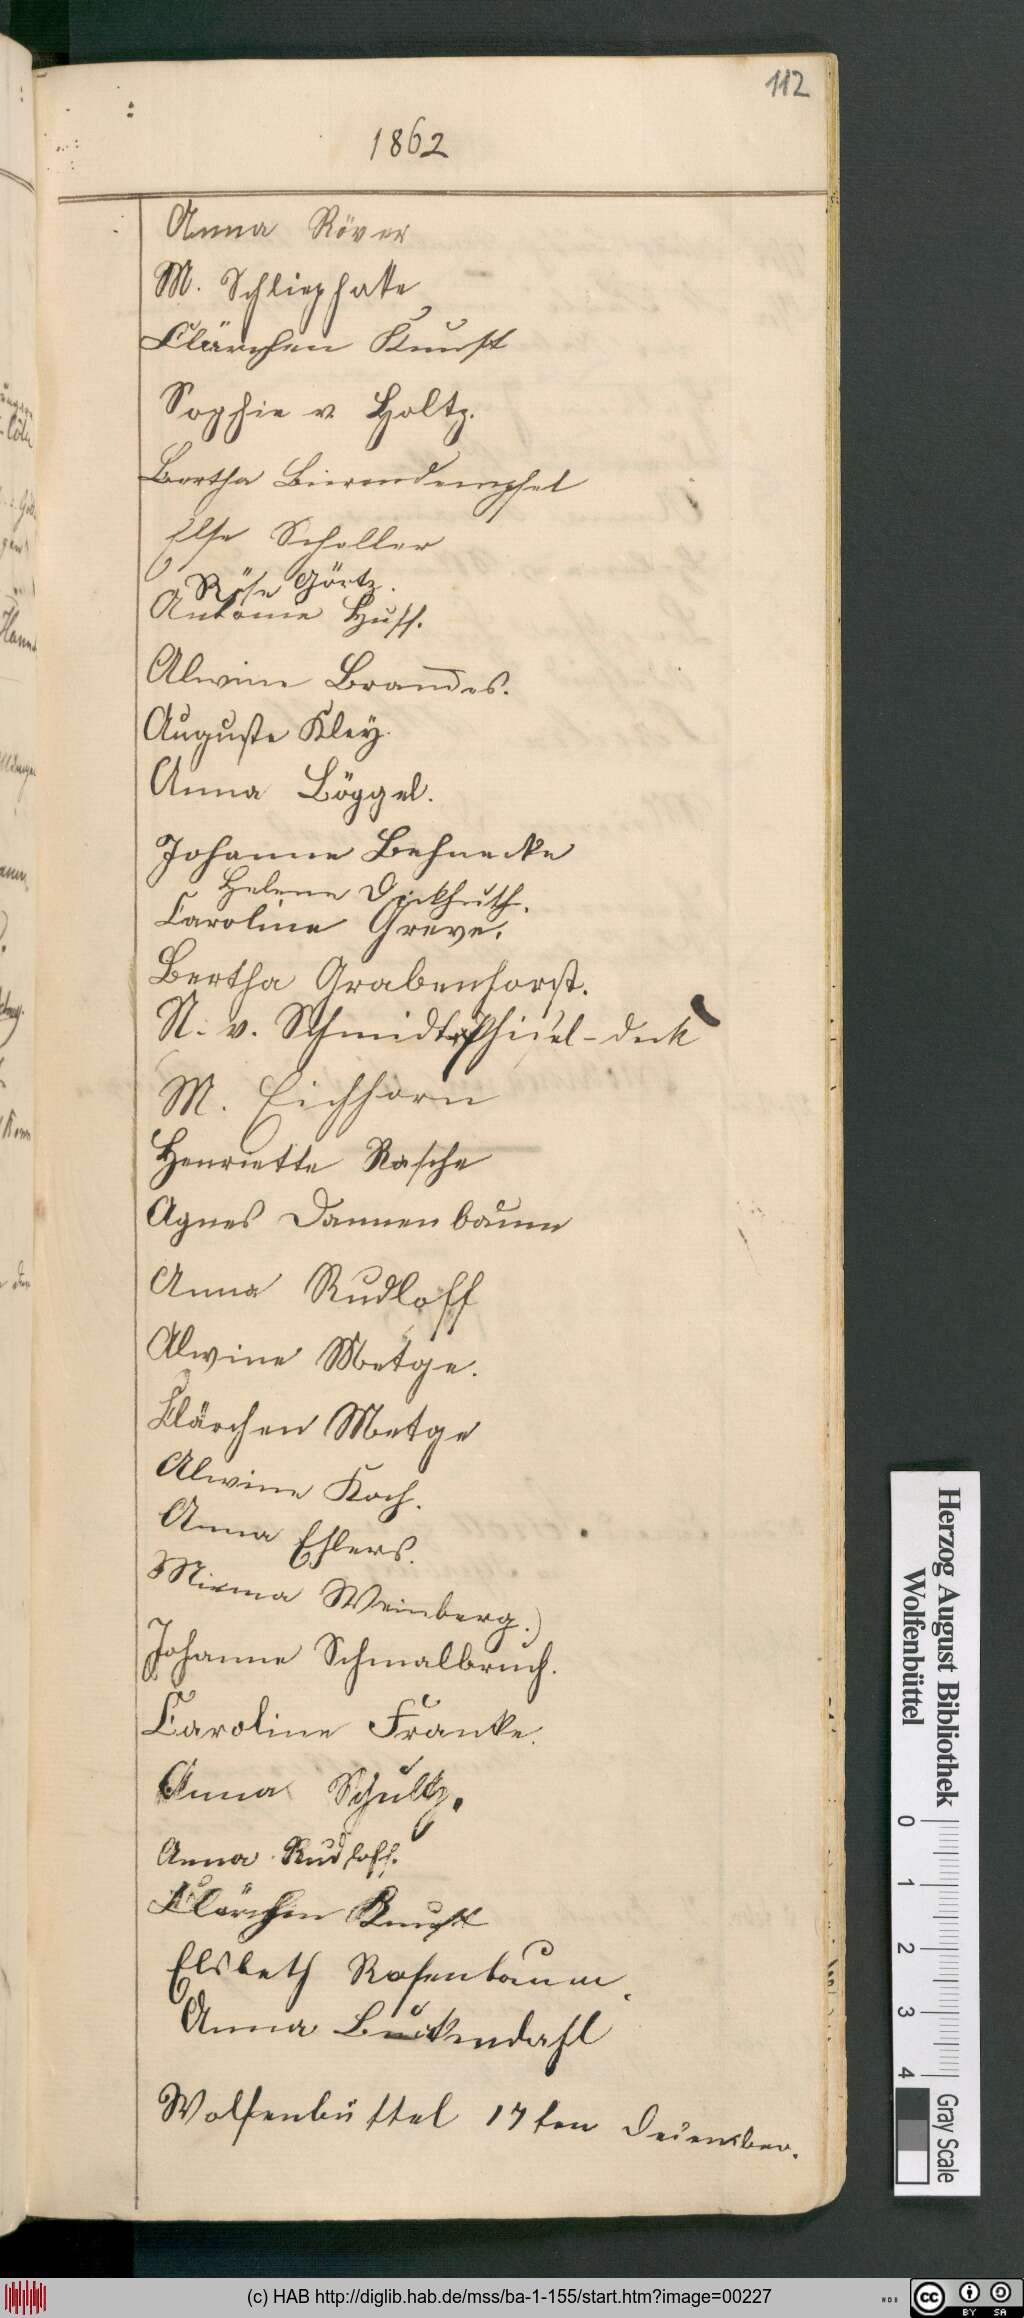 112
1862
Anna Röver
M. Schliephake
Clärchen Kunst
Sophie v Holtz.
Bertha Bierendempfel
Else Scholler
Röse Görtz.
Antonie Huss.
Alwine Brandes.
Auguste Kley.
Anna Böggel.
Johanne Behnecke
Helene Dickhuth.
Caroline Greve.
Bertha Grabenhorst.
N. v. Schmidt-Phisel-deck
M. Eichhorn
Henriette Rasche
Agnes Dannenbaum
Anna Rudloff
Alwine Metge.
Clärchen Metge
Alwine Koch.
Anna Ehlers.
Minna Weinberg.)
Johanne Schmalbruch.
Caroline Franke.
Anna Schultz.
Anna Rudloff.
Clärchen Kunst
Elsbeth Rosenbaum.
Anna Buckendahl
Wolfenbüttel 17ten December.
Herzog August Bibliothek
Wolfenbüttel
0 1 2 3 4
Gray Scale
(c) HAB http://diglib.hab.de/mss/ba-1-155/start.htm?image=00227
WDB
cc BY SA